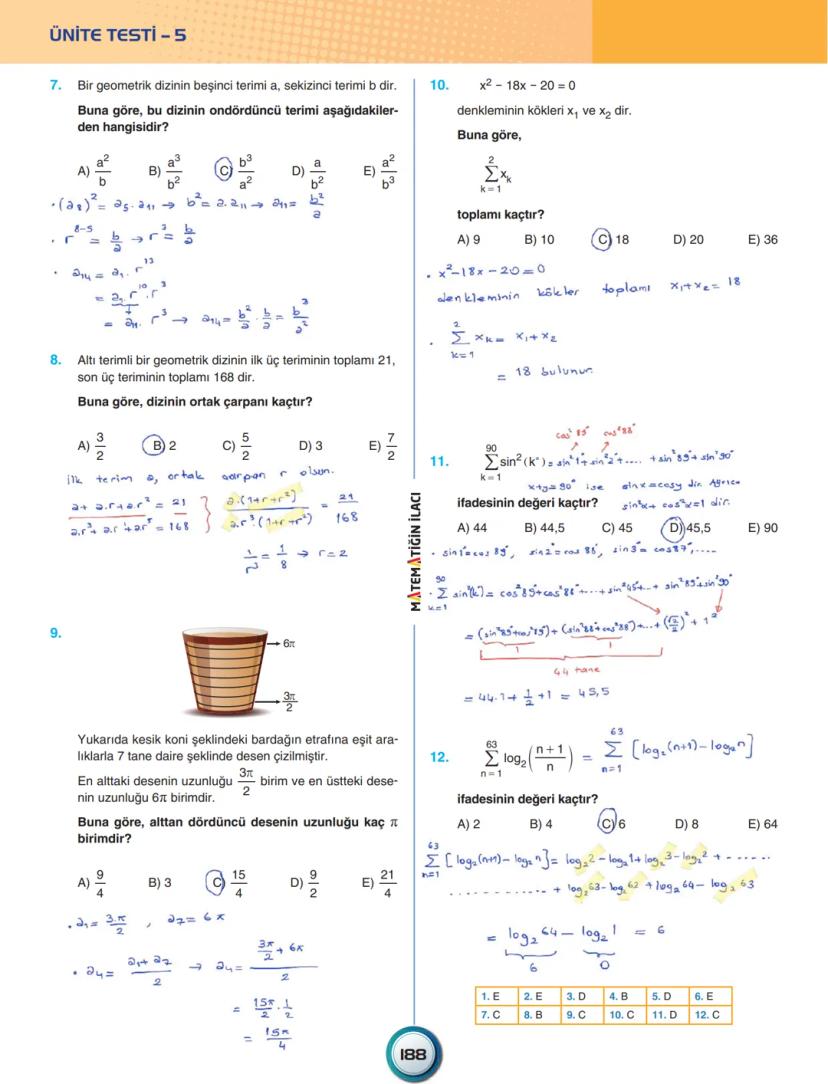 ÜNİTE TESTİ – 5
7. Bir geometrik dizinin beşinci terimi a, sekizinci terimi b dir.
Buna göre, bu dizinin ondördüncü terimi aşağıdakiler-
den hangisidir?
A) a²/b B) a³/b² C) b³/a² D) a/b² E) a²/b³
• (a₈)² = a₅ . a₁₁ → b² = a . a₁₁ → a₁₁ = b²/a
• r⁸⁻⁵ = b/a → r³ = b/a
• a₁₄ = a₁ . r¹³
= a₁ . r¹⁰ . r³
= a₁₁ . r³ → a₁₄ = b²/a . b/a = b³/a²
8. Altı terimli bir geometrik dizinin ilk üç teriminin toplamı 21,
son üç teriminin toplamı 168 dir.
Buna göre, dizinin ortak çarpanı kaçtır?
A) 3/2 B) 2 C) 5/2 D) 3 E) 7/2
ilk terim a, ortak çarpan r olsun.
a + a.r + a.r² = 21 a.(1+r+r²) / a.r³.(1+r+r²) = 21/168
a.r³ + a.r⁴ + a.r⁵ = 168
1/r³ = 1/8 → r = 2
9.
6π
3π/2
Yukarıda kesik koni şeklindeki bardağın etrafına eşit ara-
lıklarla 7 tane daire şeklinde desen çizilmiştir.
En alttaki desenin uzunluğu 3π/2 birim ve en üstteki dese-
nin uzunluğu 6π birimdir.
Buna göre, alttan dördüncü desenin uzunluğu kaç π
birimdir?
A) 9/4 B) 3 C) 15/4 D) 9/2 E) 21/4
• a₁ = 3.π/2 , a₇ = 6π
• a₄ = (a₁ + a₇)/2 → a₄ = (3π/2 + 6π)/2
= 15π/2 . 1/2
= 15π/4
MATEMATİĞİN İLACI
10. x² – 18x – 20 = 0
denkleminin kökleri x₁ ve x₂ dir.
Buna göre,
2
∑ xₖ
k = 1
toplamı kaçtır?
A) 9 B) 10 C) 18 D) 20 E) 36
• x² – 18x – 20 = 0
denkleminin kökler toplamı x₁ + x₂ = 18
2
• ∑ xₖ = x₁ + x₂
k=1
= 18 bulunur.
cos²89° cos²88°
90
11. ∑ sin²(k°) = sin²1° + sin²2° + .... + sin²89° + sin²90°
k = 1
x+y = 90° ise sinx = cosy dir. Ayrıca
ifadesinin değeri kaçtır? sin²x + cos²x = 1 dir.
A) 44 B) 44,5 C) 45 D) 45,5 E) 90
• sin1° = cos89°, sin2° = cos88°, sin3° = cos87°, ....
90
• ∑ sin²(k°) = cos²89° + cos²88° + ... + sin²45° + ... + sin²89° + sin²90°
k=1
= (sin²89° + cos²89°) + (sin²88° + cos²88°) + ... + (√2/2)² + 1²
1 1
44 tane
= 44.1 + 1/2 + 1 = 45,5
63 63
12. ∑ log₂((n + 1)/n) = ∑ [log₂(n+1) – log₂n]
n = 1 n=1
ifadesinin değeri kaçtır?
A) 2 B) 4 C) 6 D) 8 E) 64
63
∑ [log₂(n+1) – log₂n] = log₂2 – log₂1 + log₂3 – log₂2 + ......
n=1
............. + log₂63 – log₂62 + log₂64 – log₂63
= log₂64 – log₂1 = 6
6 0
1. E 2. E 3. D 4. B 5. D 6. E
7. C 8. B 9. C 10. C 11. D 12. C
188